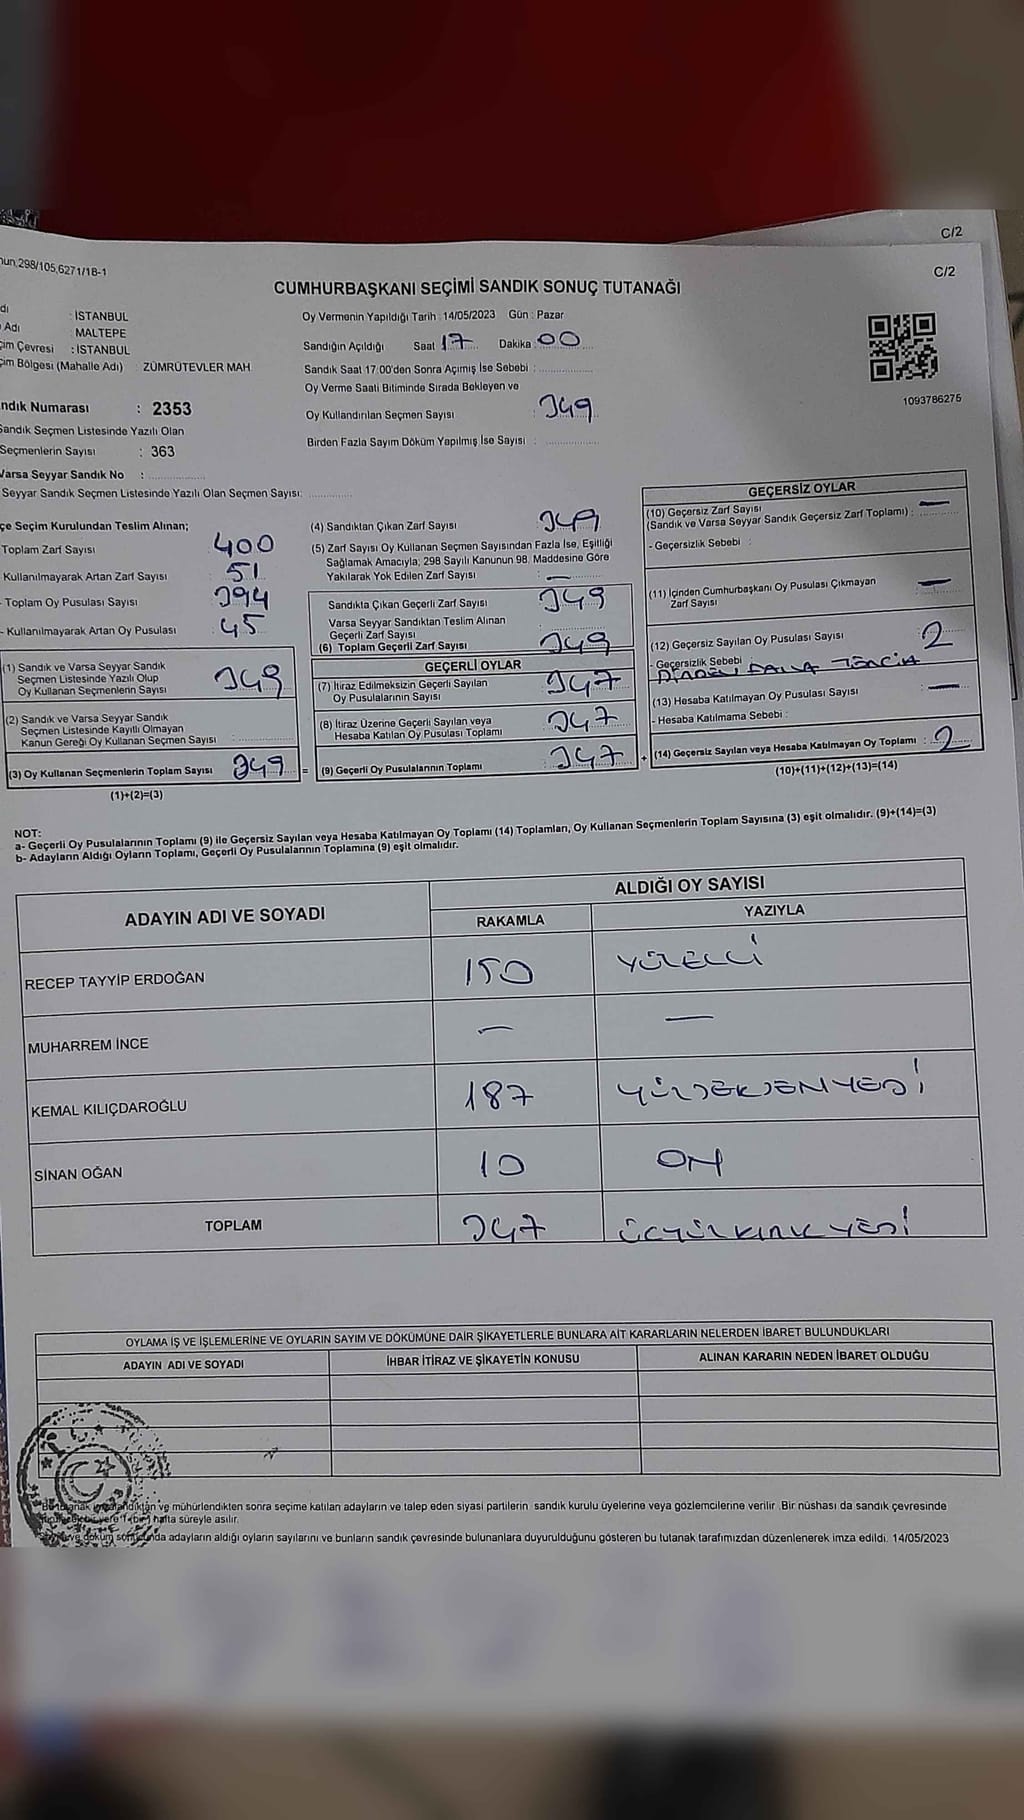 C/2
C/2
298/105,6271/1B-1
CUMHURBAŞKANI SEÇİMİ SANDIK SONUÇ TUTANAĞI
: İSTANBUL
Adı MALTEPE
: İSTANBUL
Bölgesi (Mahalle Adı) : ZÜMRÜTEVLER MAH
Numarası : 2353
Sandık Seçmen Listesinde Yazılı Olan
Seçmenlerin Sayısı : 363
Varsa Seyyar Sandık No :
Seyyar Sandık Seçmen Listesinde Yazılı Olan Seçmen Sayısı:
Oy Vermenin Yapıldığı Tarih : 14/05/2023 Gün : Pazar
Sandığın Açıldığı Saat 17 Dakika 00
Sandık Saat 17:00'den Sonra Açımış İse Sebebi :
Oy Verme Saati Bitiminde Sırada Bekleyen ve
Oy Kullandırılan Seçmen Sayısı : 349
Birden Fazla Sayım Döküm Yapılmış İse Sayısı :
1093786275
Seçim Kurulundan Teslim Alınan;
Toplam Zarf Sayısı 400
Kullanılmayarak Artan Zarf Sayısı 51
- Toplam Oy Pusulası Sayısı 394
- Kullanılmayarak Artan Oy Pusulası 45
(1) Sandık ve Varsa Seyyar Sandık
Seçmen Listesinde Yazılı Olup
Oy Kullanan Seçmenlerin Sayısı 349
(2) Sandık ve Varsa Seyyar Sandık
Seçmen Listesinde Kayıtlı Olmayan
Kanun Gereği Oy Kullanan Seçmen Sayısı :
(3) Oy Kullanan Seçmenlerin Toplam Sayısı 349 =
(1)+(2)=(3)
(4) Sandıktan Çıkan Zarf Sayısı 349
(5) Zarf Sayısı Oy Kullanan Seçmen Sayısından Fazla İse, Eşitliği
Sağlamak Amacıyla; 298 Sayılı Kanunun 98. Maddesine Göre
Yakılarak Yok Edilen Zarf Sayısı : —
Sandıkta Çıkan Geçerli Zarf Sayısı 349
Varsa Seyyar Sandıktan Teslim Alınan
Geçerli Zarf Sayısı
(6) Toplam Geçerli Zarf Sayısı 349
GEÇERLİ OYLAR
(7) İtiraz Edilmeksizin Geçerli Sayılan
Oy Pusulalarının Sayısı 347
(8) İtiraz Üzerine Geçerli Sayılan veya
Hesaba Katılan Oy Pusulası Toplamı 347
(9) Geçerli Oy Pusulalarının Toplamı 347 +
GEÇERSİZ OYLAR
(10) Geçersiz Zarf Sayısı
(Sandık ve Varsa Seyyar Sandık Geçersiz Zarf Toplamı) : —
- Geçersizlik Sebebi :
(11) İçinden Cumhurbaşkanı Oy Pusulası Çıkmayan
Zarf Sayısı —
(12) Geçersiz Sayılan Oy Pusulası Sayısı 2
- Geçersizlik Sebebi BİRDEN FAZLA TERCİH
(13) Hesaba Katılmayan Oy Pusulası Sayısı —
- Hesaba Katılmama Sebebi :
(14) Geçersiz Sayılan veya Hesaba Katılmayan Oy Toplamı : 2
(10)+(11)+(12)+(13)=(14)
NOT:
a- Geçerli Oy Pusulalarının Toplamı (9) ile Geçersiz Sayılan veya Hesaba Katılmayan Oy Toplamı (14) Toplamları, Oy Kullanan Seçmenlerin Toplam Sayısına (3) eşit olmalıdır. (9)+(14)=(3)
b- Adayların Aldığı Oyların Toplamı, Geçerli Oy Pusulalarının Toplamına (9) eşit olmalıdır.
ADAYIN ADI VE SOYADI ALDIĞI OY SAYISI
RAKAMLA YAZIYLA
RECEP TAYYİP ERDOĞAN 150 YÜZELLİ
MUHARREM İNCE — —
KEMAL KILIÇDAROĞLU 187 YÜZSEKSENYEDİ
SİNAN OĞAN 10 ON
TOPLAM 347 ÜÇYÜZKIRKYEDİ
OYLAMA İŞ VE İŞLEMLERİNE VE OYLARIN SAYIM VE DÖKÜMÜNE DAİR ŞİKAYETLERLE BUNLARA AİT KARARLARIN NELERDEN İBARET BULUNDUKLARI
ADAYIN ADI VE SOYADI İHBAR İTİRAZ VE ŞİKAYETİN KONUSU ALINAN KARARIN NEDEN İBARET OLDUĞU
ve mühürlendikten sonra seçime katılan adayların ve talep eden siyasi partilerin sandık kurulu üyelerine veya gözlemcilerine verilir. Bir nüshası da sandık çevresinde
hafta süreyle asılır.
adayların aldığı oyların sayılarını ve bunların sandık çevresinde bulunanlara duyurulduğunu gösteren bu tutanak tarafımızdan düzenlenerek imza edildi. 14/05/2023